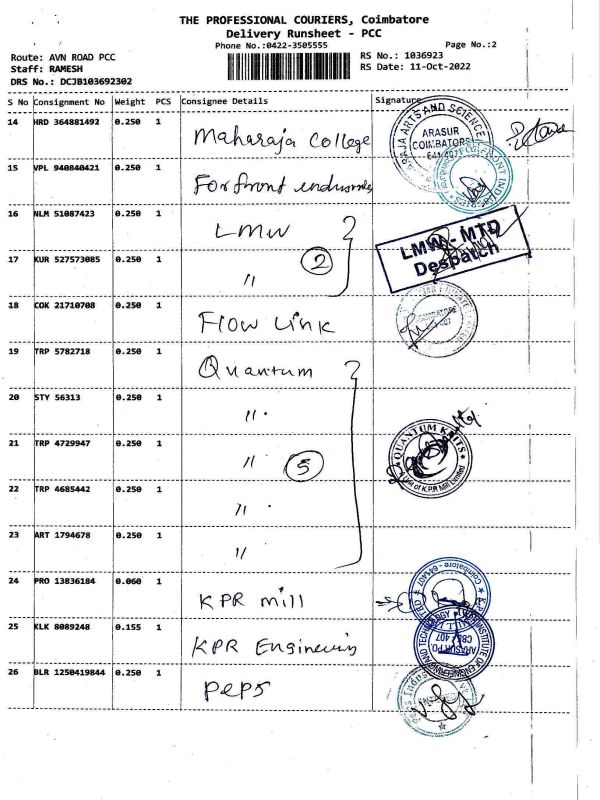 THE PROFESSIONAL COURIERS, Coimbatore
Delivery Runsheet - PCC
Phone No.:0422-3505555
Page No.:2
Route: AVN ROAD PCC
RS No.: 1036923
Staff: RAMESH
RS Date: 11-Oct-2022
DRS No.: DCJB103692302
S No Consignment No Weight PCS Consignee Details Signature
14 HRD 364881492 0.250 1 Maharaja College
15 VPL 940840421 0.250 1 Forfront industries
16 NLM 51087423 0.250 1 LMW
17 KUR 527573085 0.250 1 " 2
18 COK 21710708 0.250 1 Flow Link
19 TRP 5782718 0.250 1 Quantum
20 STY 56313 0.250 1 "
21 TRP 4729947 0.250 1 " 5
22 TRP 4685442 0.250 1 "
23 ART 1794678 0.250 1 "
24 PRO 13836184 0.060 1 KPR mill
25 KLK 8089248 0.155 1 KPR Engineering
26 BLR 1250419844 0.250 1 PEPS
ARTS AND SCIENCE
ARASUR
COIMBATORE
641 407
LMW - MTD
Despatch
QUANTUM KNITS
Unit of K.P.R Mill Limited
Coimbatore - 641407
INSTITUTE OF ENGINEERING AND TECHNOLOGY
ARASUR PO